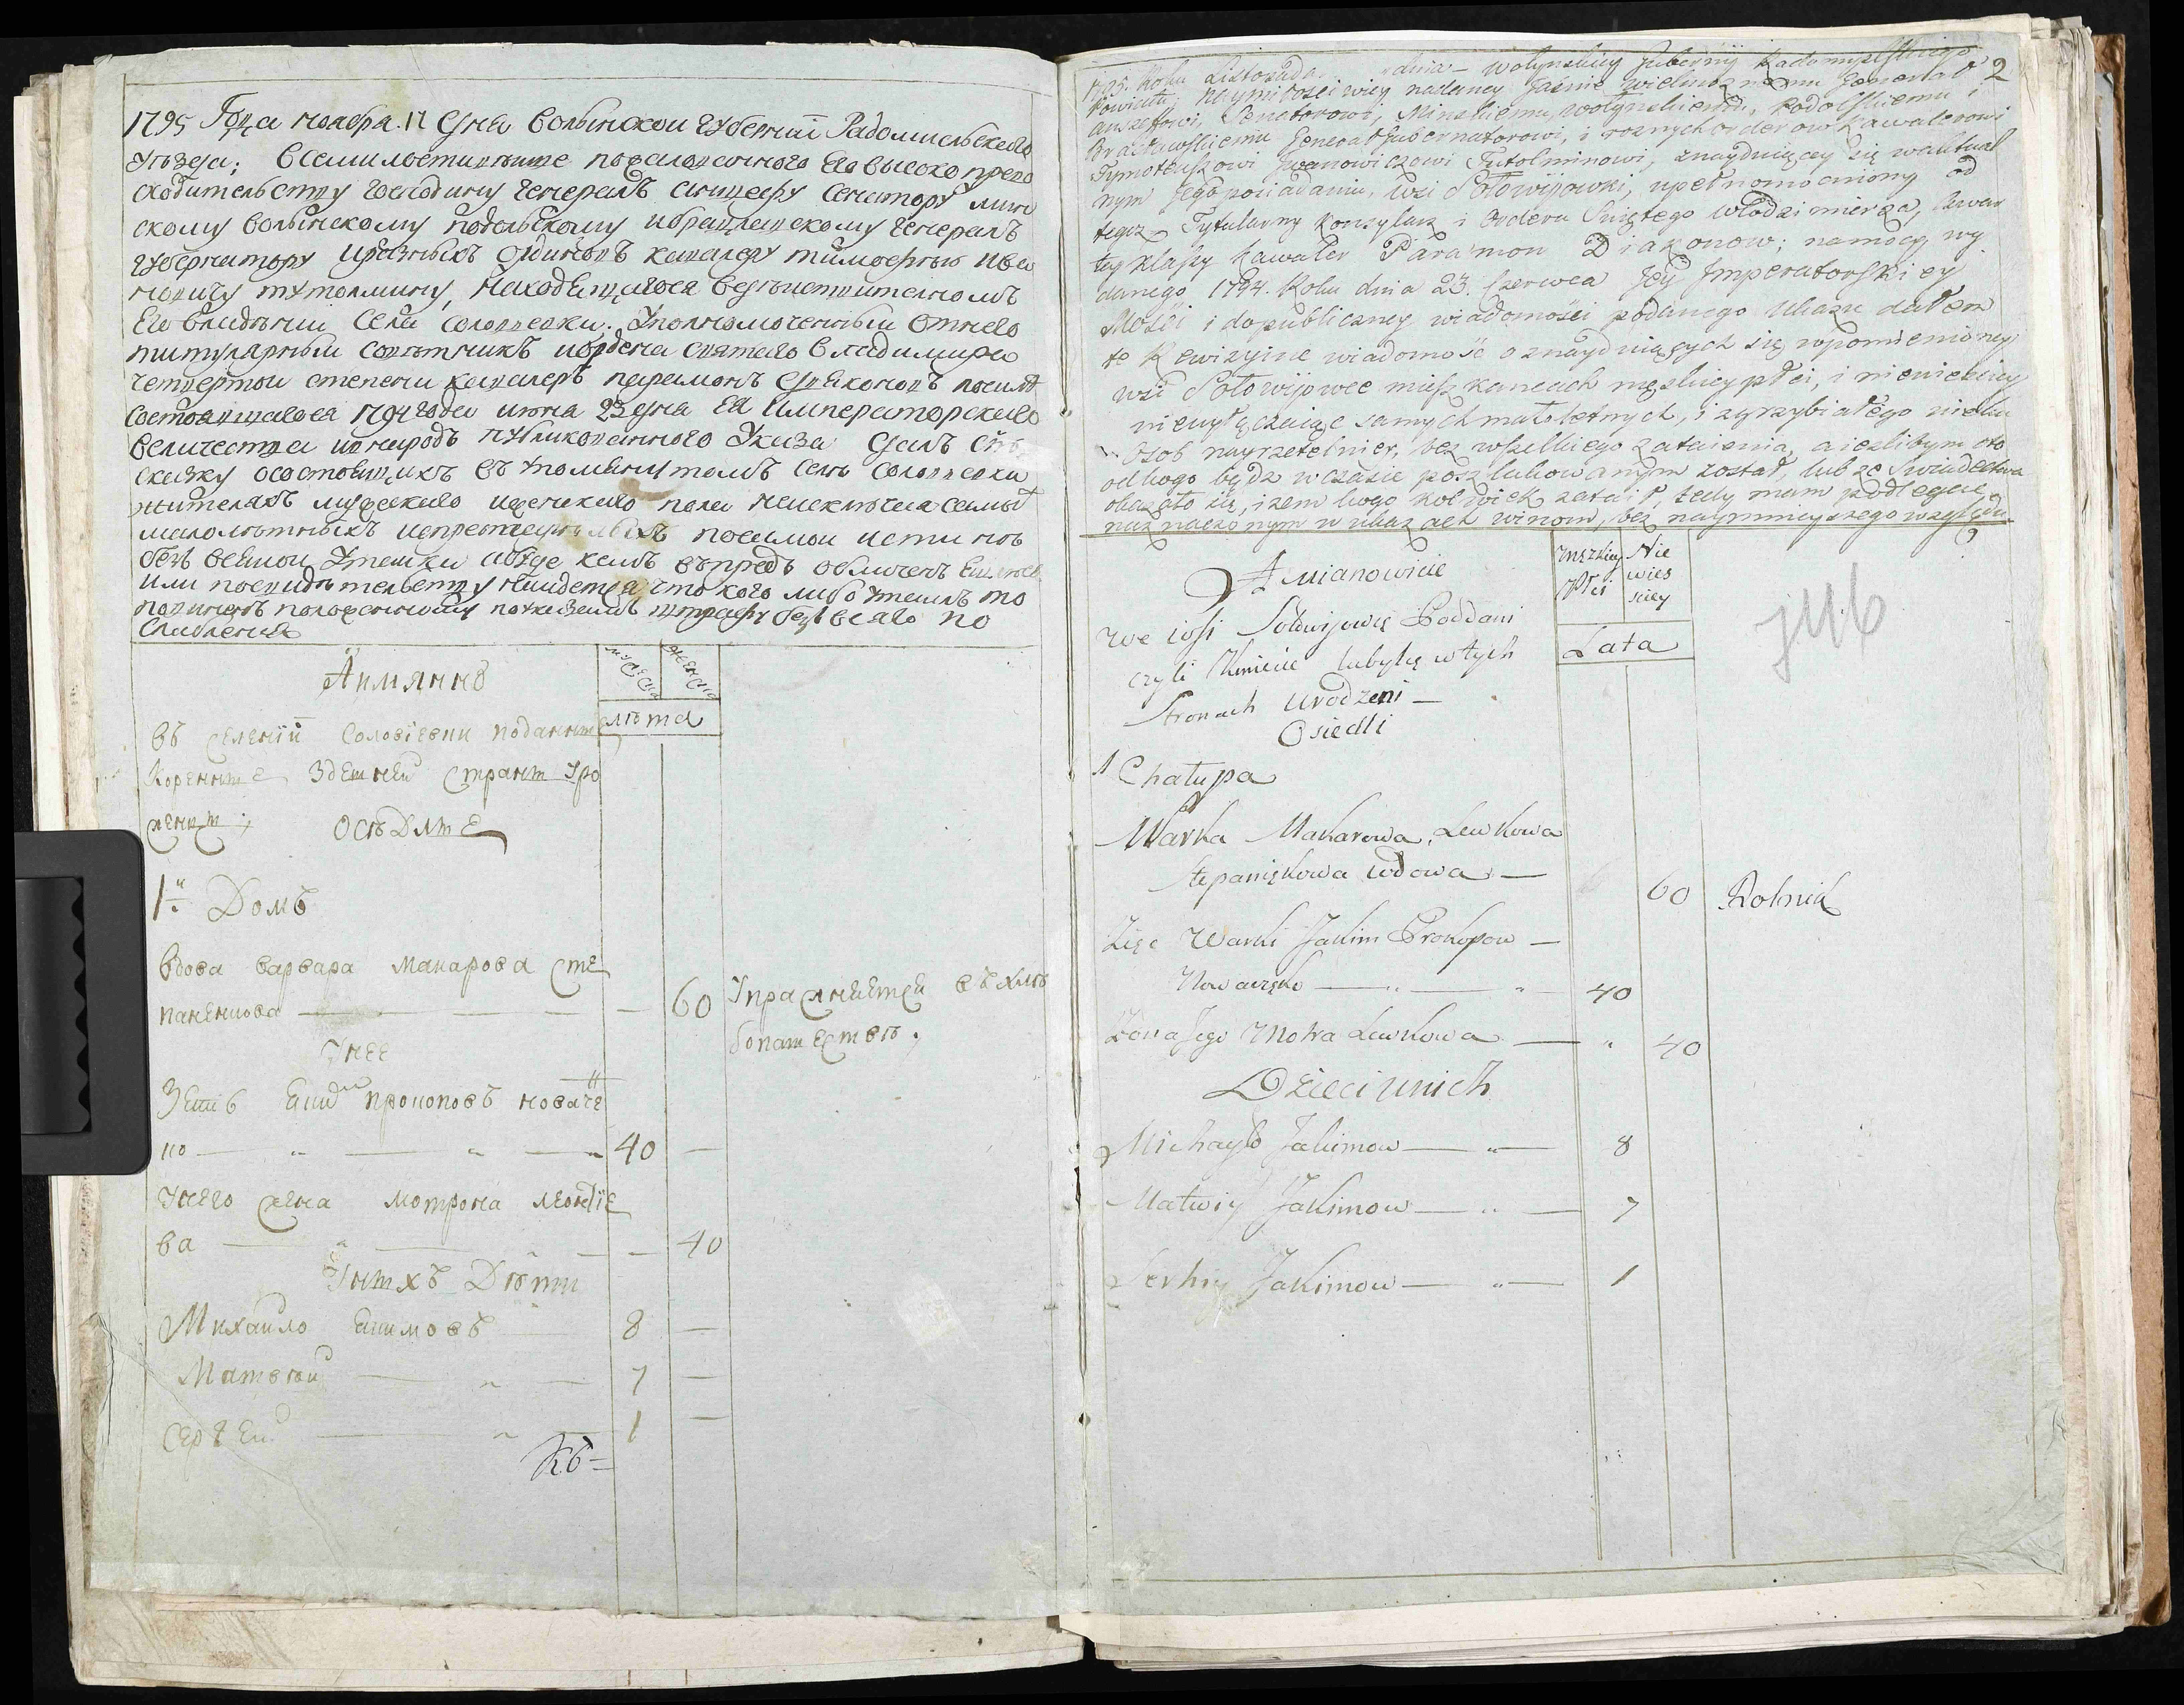 1795 Года ноября 17 дня волынской губернїи Радомисльского
уѣзда; всемилостивѣише пожалованного Его высоко прево
сходительству господину Генералъ аншефу сенатору мин
скому волынскому подольскому и брацлавскому Генералъ
губернатору и разныхъ ординовъ кавалеру тимофею ива
новичу тутолмину, находящагося в дѣиствителномъ
Его владѣнии села соловиевки. Уполномоченный от него
титулярный советникъ и ордена святаго владимира
четвертой степени кавалеръ парамонъ дияконовъ по силѣ
состоявшагося 1794 года июня 23 дня Ея императорского
величества и в народъ публикованного указа далъ сию
скаску о состоящихъ въ упомянутомъ селѣ соловиевки
жителяхъ мужеского и женского пола не исключая самых
малолѣтныхъ и престарелыхъ по самои истинне
безъ всякои утаики и буде кемъ въпредь обличенъ
или по свидѣтельству наидется что кого либо утаилъ то
повиненъ положенному по указамъ штрафу безъ всяго по
слабления
А имянно
мужеска
женска
лѣта
въ селенїи Соловїевки поданные
Коренные здешней страны уро
женцы; осѣдлые
1й Домъ
вдова варвара макарова сте
паненкова — — 60 упражняется въ хлѣ
бопашествѣ;
У нее
Зять Еким прокоповъ новаче
нко — 40 —
У него жена мотрона леонтїе
ва — — 40
У ныхъ Дѣти
Михаило Екимовъ 8 —
Матвѣй — 7 —
Сергей — 1 —
Къ=
2
1795. Roku Listopada dnia — Wołynskiey Gubernij Radomyslskiego
Powiatu; naymiłosciwiey nadaney Jaśnie wielmożnemu Generał
anszefowi, Senatorowi, Minskiemu, wołynskiemu, Podolskiemu i
Bracławskiemu Generał Gubernatorowi, i roznych orderow Kawalerowi
Tymoteuszowi Jwanowiczowi Tutolminowi, znayduiącey się w aktual
nym Jego posiadaniu, wsi Sołowijowki, upełnomocniony od
tegoż Tytularny Konsylarz i Orderu Swiętego Włodzimierza, czwar
tey klassy Kawaler Paramon Diakonow; na mocy wy
danego 1794. Roku dnia 23. Czerwca Jey Jmperatorskiey
Mości i do publiczney wiadomości podanego Ukazu dałem
te Rewizyine wiadomość o znayduiących się wpomienioney
wsi Sołowijowce mieszkancach męskiey płci, i niewieściey
niewyłączaiąc samych małoletnych, i zgrzybiałego wieku
Osob nayrzetelniey, bez wszelkiego zataienia, a iezlibym oto
od kogo bądz w czasie poszlakowanym został, lub ze Swiadectwa
okazało się, iżem kogo kolwiek zataił, tedy mam podlegać
naznaczonym w ukazach winom, bez naymnieyszego względu
A mianowicie
męzkiey Płci
Nie wies ciey
Lata
we wsi Sołowijowce Poddani
czyli Kmiecie lub też w tych
Stronach urodzeni —
Osiedli
1 Chałupa
Warka Makarowa, Lewkowa
Stepaniękowa wdowa — 60 Rolnik
Zięc Warki Jakim Prokopow —
Nowaczęko — 40
Zona Jego Motra Lewkowa — 40
Dzieci u nich
Michayło Jakimow — 8
Matwiy Jakimow — 7
Serhiy Jakimow — 1